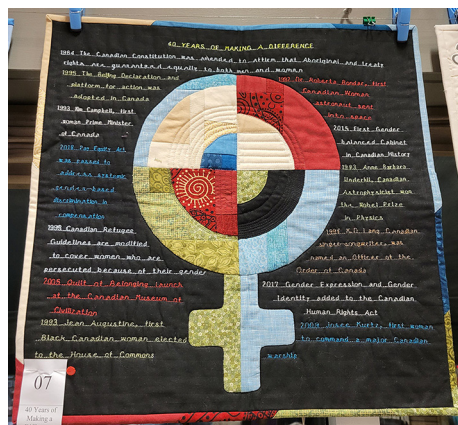 40 YEARS OF MAKING A DIFFERENCE
1984 The Canadian Constitution was amended to affirm that Aboriginal and treaty
rights are guaranteed equally to both men and women
1995 The Beijing Declaration and
platform for action was
adopted in Canada
1993 Kim Campbell, first
woman Prime Minister
of Canada
2018 Pay Equity Act
was passed to
address systemic
gender-based
discrimination in
compensation
1996 Canadian Refugee
Guidelines are modified
to cover women who are
persecuted because of their gender
2005 Quilt of Belonging launch
at the Canadian Museum of
Civilization
1993 Jean Augustine, first
Black Canadian woman elected
to the House of Commons
1992 Dr. Roberta Bondar, first
Canadian Woman
astronaut sent
into space
2015 First Gender
balanced Cabinet
in Canadian History
1993 Anne Barbara
Underhill, Canadian
Astrophysicist won
the Nobel Prize
in Physics
1996 K.D. Lang Canadian
singer-songwriter, was
named an Officer of the
Order of Canada
2017 Gender Expression and Gender
Identity added to the Canadian
Human Rights Act
2009 Josee Kurtz, first woman
to command a major Canadian
warship
07
40 Years of
Making a